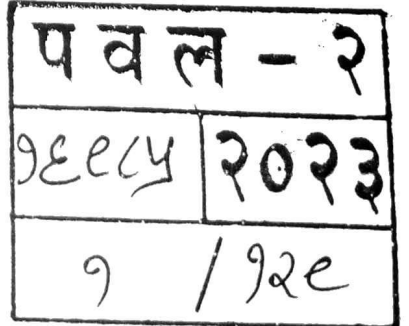 पवल - २
१६९८५ २०२३
१ / १२९